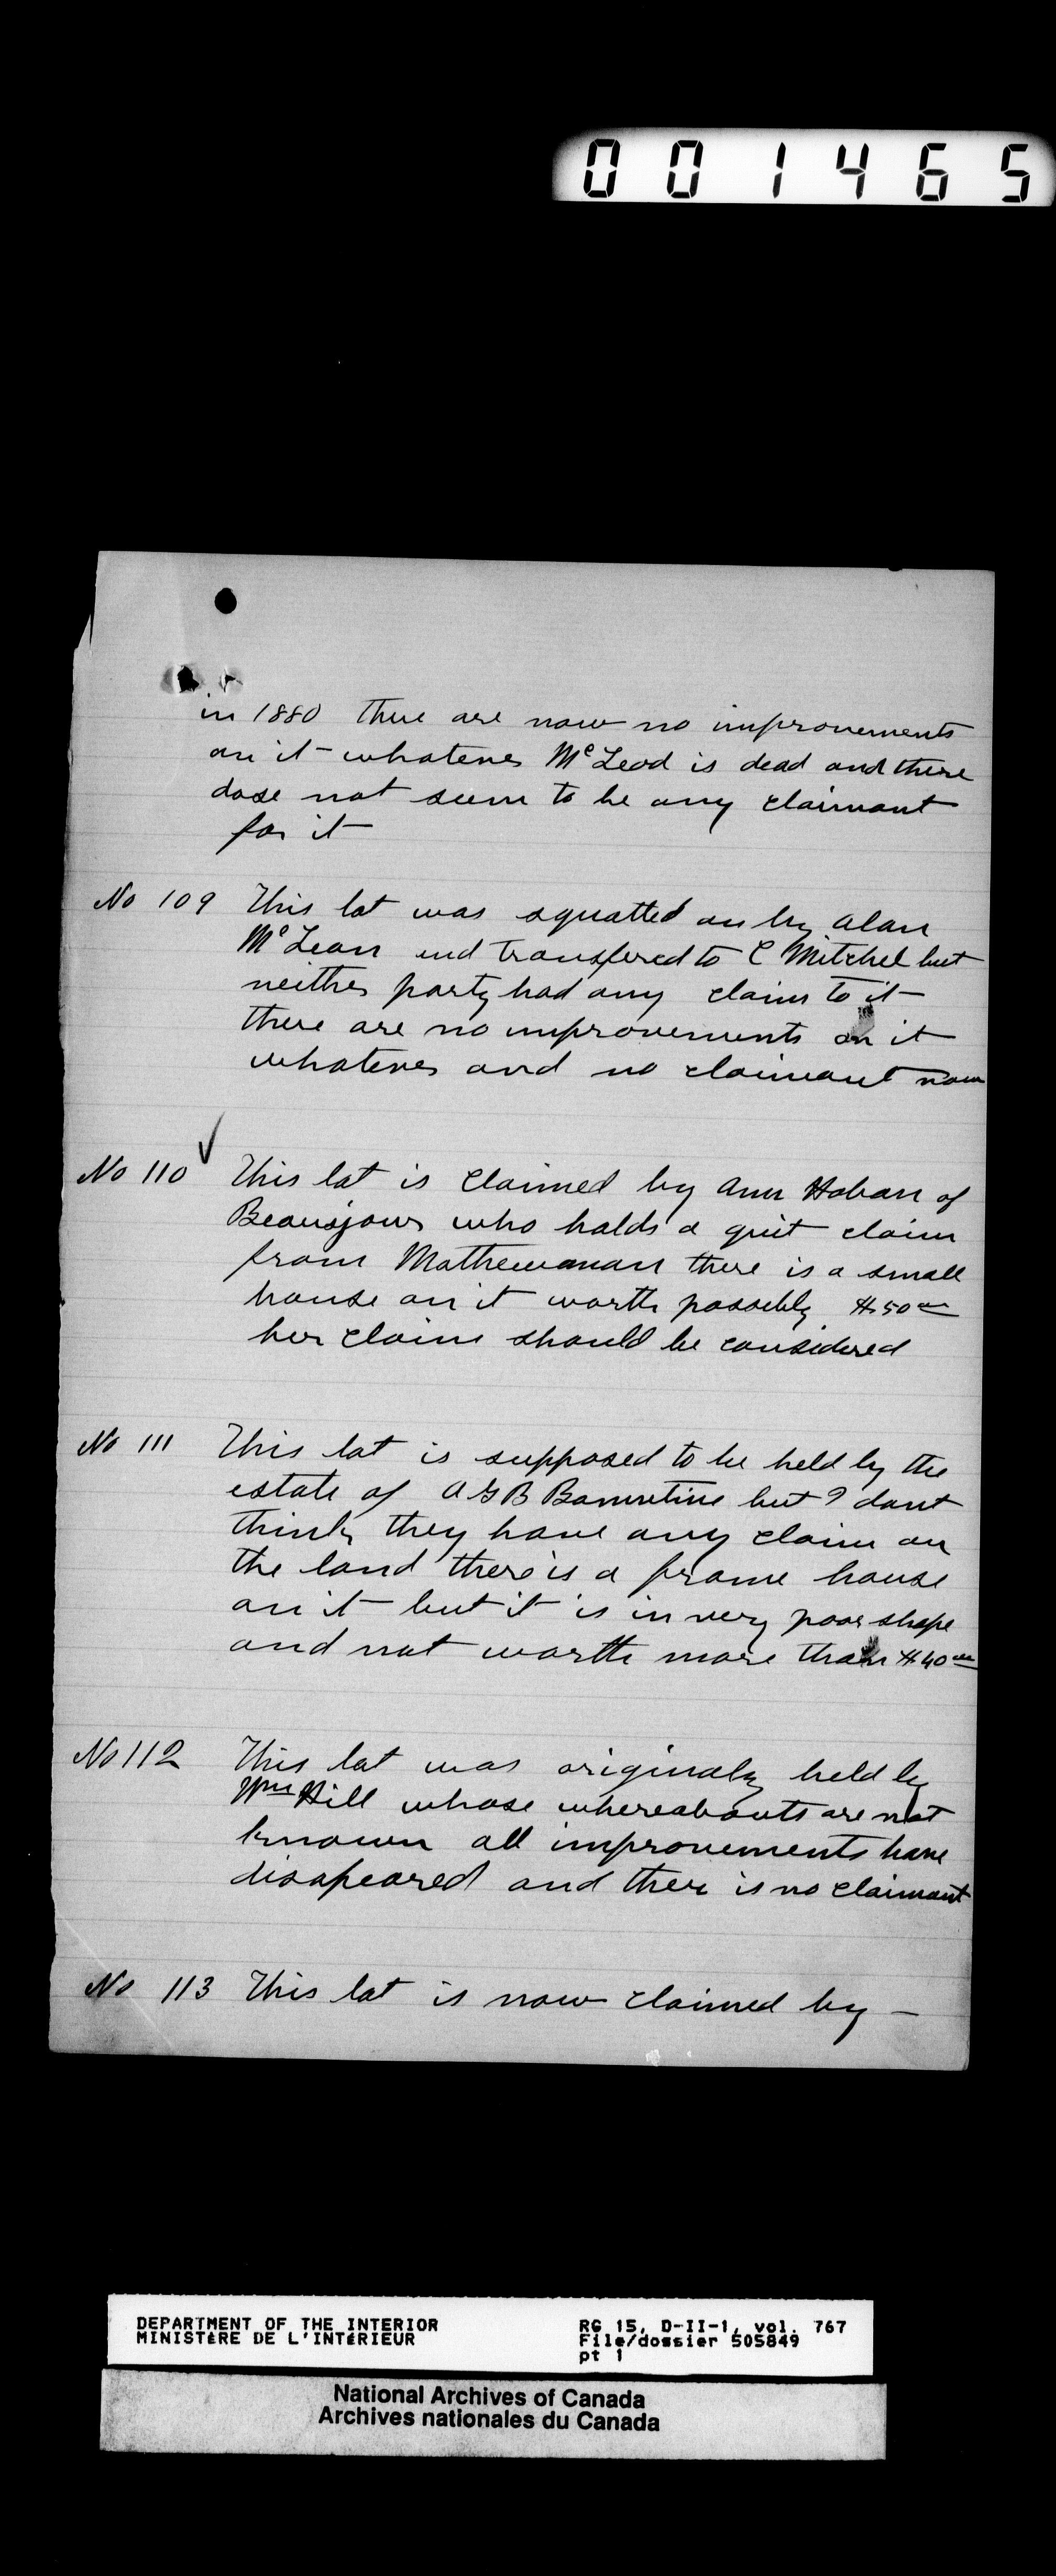 001465
in 1880 there are now no improvements
on it whatever McLeod is dead and there
dose not seem to be any claimant
for it
No 109 This lot was squatted on by Alan
McLean and transfered to C Mitchel but
neither party had any claim to it
there are no improvements on it
whatever and no claimant now
No 110 ✓ This lot is claimed by Ann Hoban of
Beausjour who holds a quit claim
from Mathewanan there is a small
house on it worth possebly $50 00
her claim should be considered
No 111 This lot is supposed to be held by the
estate of A G B Bannetine but I dont
think they have any claim on
the land there is a frame house
on it but it is in very poor shape
and not worth more than $40 00
No 112 This lot was originaly held by
Wm Hill whose whereabouts are not
known all improvements have
disapeared and ther is no claimant
No 113 This lot is now claimed by —
DEPARTMENT OF THE INTERIOR RG 15, D-II-1, vol. 767
MINISTÈRE DE L'INTÉRIEUR File/dossier 505849
pt 1
National Archives of Canada
Archives nationales du Canada